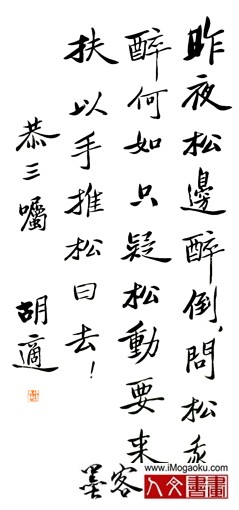 昨夜松邊醉倒,問松我
醉何如只疑松動要来
扶以手推松曰去!
恭三囑 胡適
墨客
www.iMogaoku.com
人文書畫